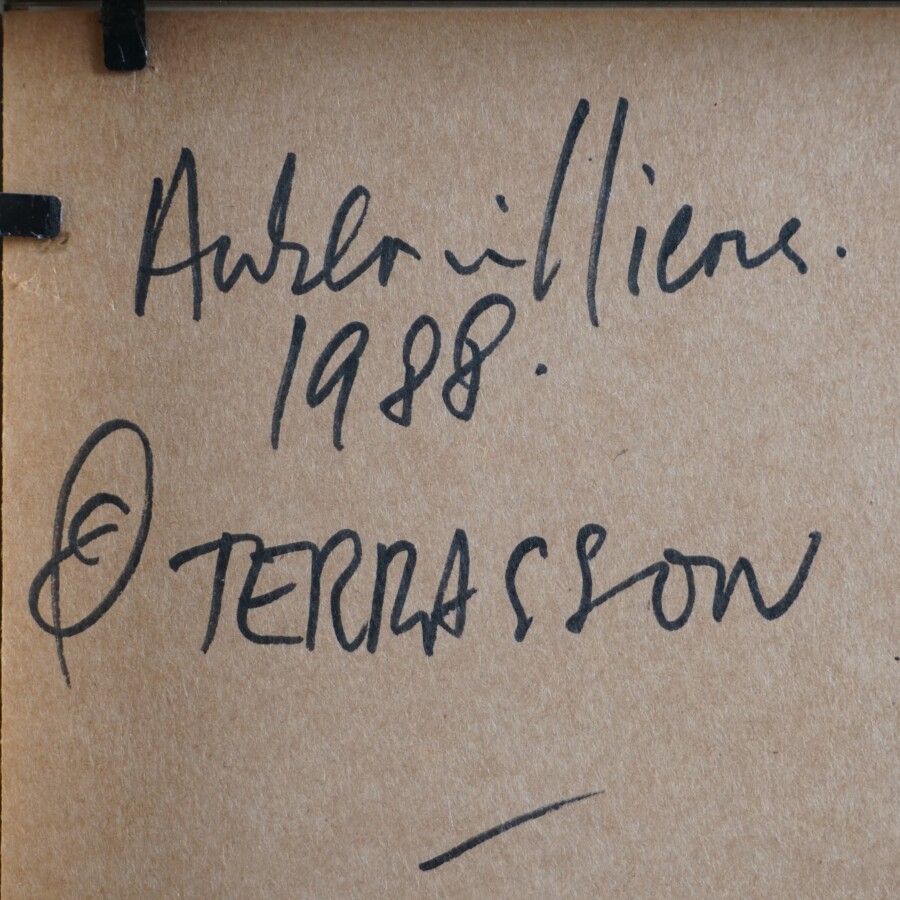 Aubervilliers.
1988.
© TERRASSON